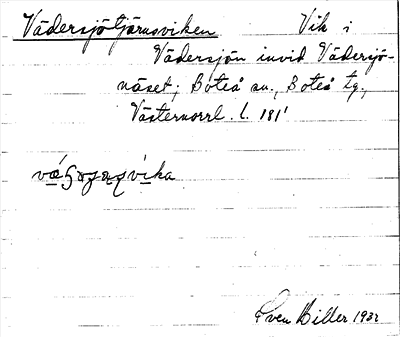 Vädersjötjärnsviken Vik i
Vädersjön invid Vädersjö-
näset; Boteå sn., Boteå tg.,
Västernorrl. l. 181'
vika
Sven Hiller 1932